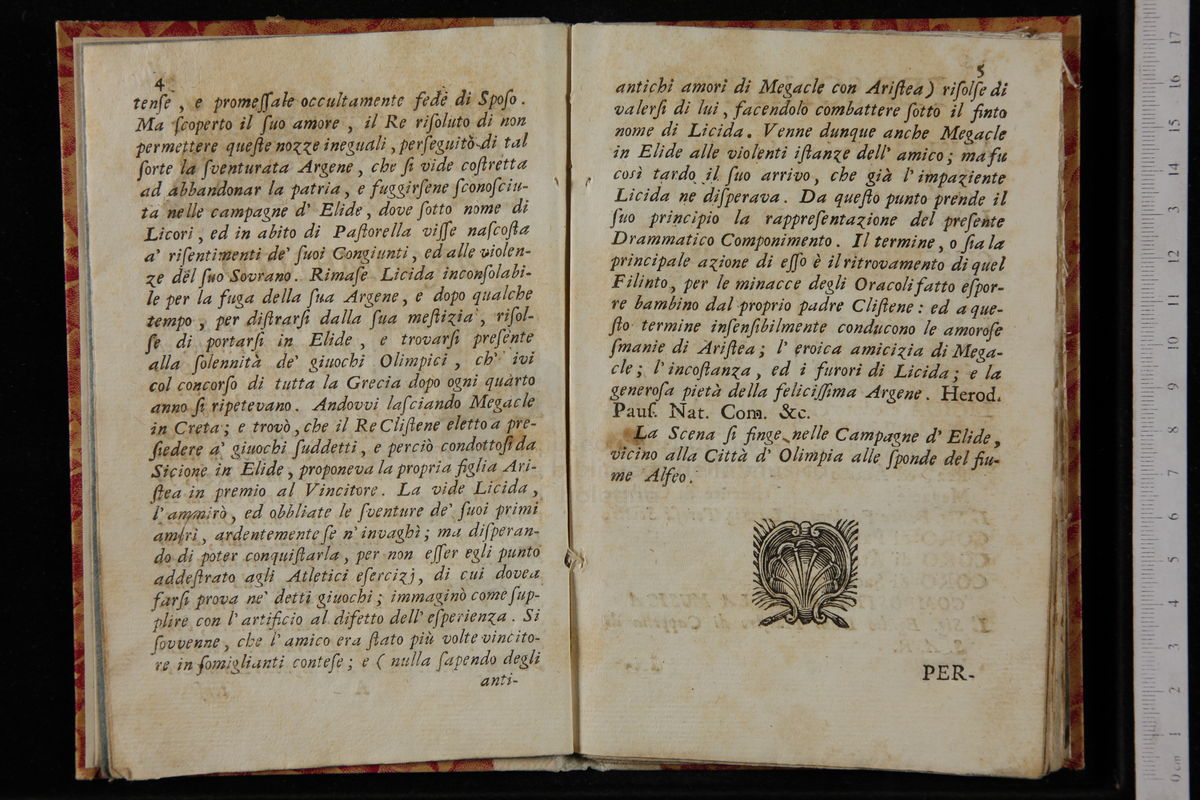 4
tenſe , e promeſſale occultamente fede di Spoſo .
Ma ſcoperto il ſuo amore , il Re riſoluto di non
permettere queſte nozze ineguali , perſeguitò di tal
ſorte la ſventurata Argene , che ſi vide coſtretta
ad abbandonar la patria , e fuggirſene ſconoſciu-
ta nelle campagne d' Elide , dove ſotto nome di
Licori , ed in abito di Paſtorella viſſe naſcoſta
a' riſentimenti de' ſuoi Congiunti , ed alle violen-
ze del ſuo Sovrano . Rimaſe Licida inconſolabi-
le per la fuga della ſua Argene , e dopo qualche
tempo , per diſtrarſi dalla ſua meſtizia , riſol-
ſe di portarſi in Elide , e trovarſi preſente
alla ſolennità de' giuochi Olimpici , ch' ivi
col concorſo di tutta la Grecia dopo ogni quarto
anno ſi ripetevano . Andovvi laſciando Megacle
in Creta ; e trovò , che il Re Cliſtene eletto a pre-
ſiedere a' giuochi ſuddetti , e perciò condottoſi da
Sicione in Elide , proponeva la propria figlia Ari-
ſtea in premio al Vincitore . La vide Licida ,
l' ammirò , ed obbliate le ſventure de' ſuoi primi
amori , ardentemente ſe n' invaghì ; ma diſperan-
do di poter conquiſtarla , per non eſſer egli punto
addeſtrato agli Atletici eſercizj , di cui dovea
farſi prova ne' detti giuochi ; immaginò come ſup-
plire con l' artificio al difetto dell' eſperienza . Si
ſovvenne , che l' amico era ſtato più volte vincito-
re in ſomiglianti conteſe ; e ( nulla ſapendo degli
anti-
5
antichi amori di Megacle con Ariſtea ) riſolſe di
valerſi di lui , facendolo combattere ſotto il finto
nome di Licida . Venne dunque anche Megacle
in Elide alle violenti iſtanze dell' amico ; ma fu
così tardo il ſuo arrivo , che già l' impaziente
Licida ne diſperava . Da queſto punto prende il
ſuo principio la rappreſentazione del preſente
Drammatico Componimento . Il termine , o ſia la
principale azione di eſſo è il ritrovamento di quel
Filinto , per le minacce degli Oracoli fatto eſpor-
re bambino dal proprio padre Cliſtene : ed a que-
ſto termine inſenſibilmente conducono le amoroſe
ſmanie di Ariſtea ; l' eroica amicizia di Mega-
cle ; l' incoſtanza , ed i furori di Licida ; e la
generoſa pietà della feliciſſima Argene . Herod.
Pauſ. Nat. Com. &c.
La Scena ſi finge nelle Campagne d' Elide ,
vicino alla Città d' Olimpia alle ſponde del fiu-
me Alfeo .
PER-
0 cm 1 2 3 4 5 6 7 8 9 10 11 12 13 14 15 16 17